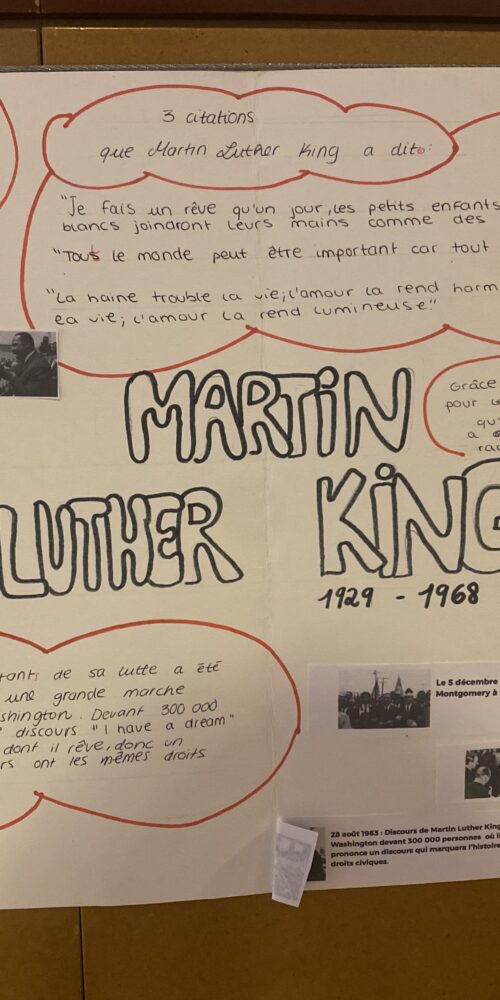 3 citations
que Martin Luther King a dit:
"Je fais un rêve qu'un jour, les petits enfants
blancs joindront leurs mains comme des
"Tous le monde peut être important car tout
"La haine trouble la vie; l'amour la rend harm
la vie; l'amour la rend lumineuse."
MARTiN
LUTHER KiNG
1929 - 1968
Grâce
pour le
qu'
a
rac
tant de sa lutte a été
une grande marche
shington. Devant 300 000
discours "I have a dream"
dont il rêve, donc un
rs ont les mêmes droits
Le 5 décembre
Montgomery à
28 août 1963 : Discours de Martin Luther King
Washington devant 300 000 personnes où i
prononce un discours qui marquera l'histoire
droits civiques.